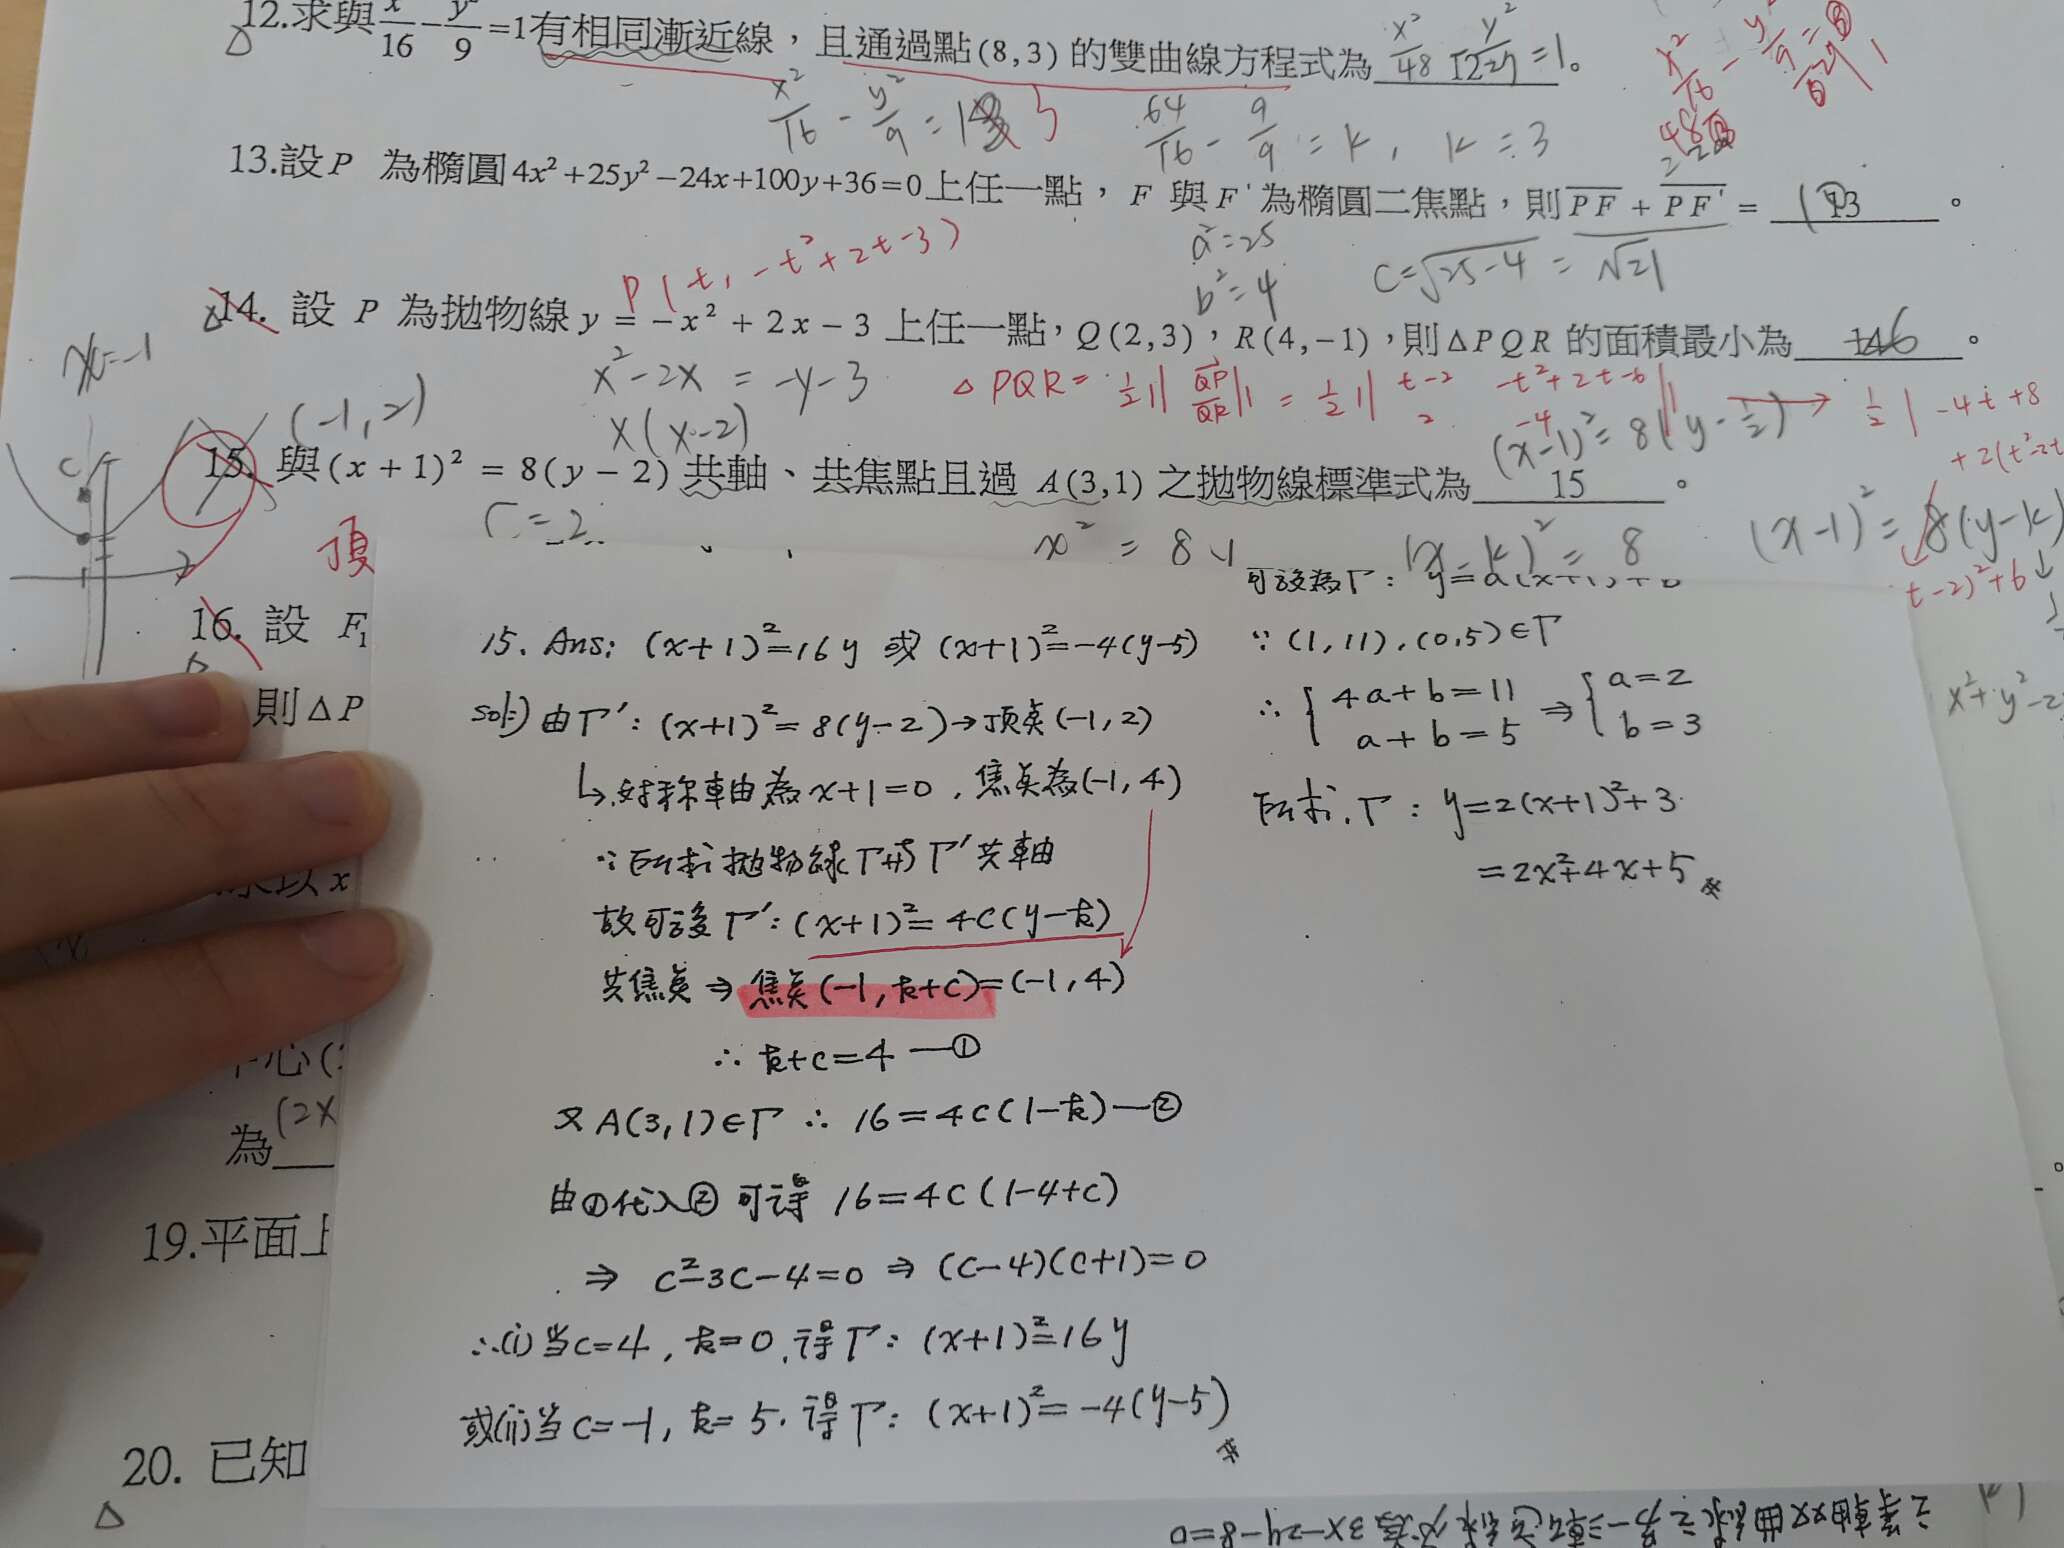 12.求與 x²/16 - y²/9 =1有相同漸近線，且通過點(8,3)的雙曲線方程式為 x²/48 - y²/27 =1。
x²/16 - y²/9 = 3
64/16 - 9/9 = k, k = 3
13.設P 為橢圓4x²+25y²-24x+100y+36=0上任一點，F 與F'為橢圓二焦點，則PF + PF' =
。
a²=25
b²=4
c=√25-4 = √21
P(t, -t²+2t-3)
14. 設 P 為拋物線y = -x² + 2x - 3 上任一點，Q(2,3)，R(4,-1)，則ΔPQR 的面積最小為 6 。
x=-1
x²-2x = -y-3
x(x-2)
(-1,2)
△PQR = 1/2 || QP QR || = 1/2 || t-2 -t²+2t-6 2 -4 || → 1/2 | -4t+8
+2(t²-2t
(x-1)²=8(y-1/2)
15. 與(x+1)² = 8(y-2)共軸、共焦點且過 A(3,1) 之拋物線標準式為 15 。
C
C=2
(x-1)²=8(y-k)
頂
x² = 8y
(x-k)² = 8
t-2)²+6
16. 設 F₁
則ΔP
x²+y²-2
為
(2x
19.平面上
20. 已知
15. Ans: (x+1)²=16y 或 (x+1)²=-4(y-5)
sol:) 由Γ': (x+1)²=8(y-2)→頂点(-1,2)
↳對称軸為x+1=0, 焦点為(-1,4)
∵所求拋物線Γ與Γ'共軸
故可設Γ': (x+1)²=4c(y-k)
共焦点⇒焦点(-1,k+c)=(-1,4)
∴ k+c=4 —①
又A(3,1)∈Γ ∴ 16=4c(1-k)—②
由①代入②可得 16=4c(1-4+c)
⇒ c²-3c-4=0 ⇒ (c-4)(c+1)=0
∴(i)當c=4, k=0, 得Γ: (x+1)²=16y
或(ii)當c=-1, k=5. 得Γ: (x+1)²=-4(y-5)
可設為Γ: y=a(x+1)²+b
∵(1,11), (0,5)∈Γ
∴{4a+b=11 ⇒ {a=2
a+b=5 b=3
所求Γ: y=2(x+1)²+3
=2x²+4x+5